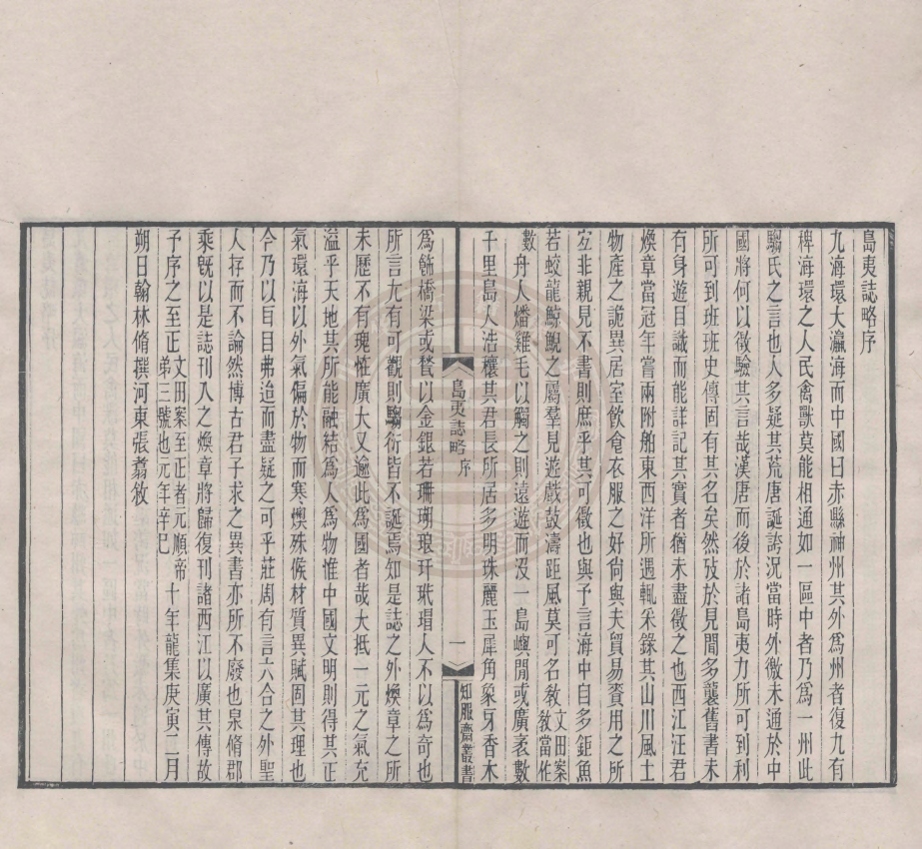 島夷誌略序
九海環大瀛海而中國曰赤縣神州其外爲州者復九有
裨海環之人民禽獸莫能相通如一區中者乃爲一州此
騶氏之言也人多疑其荒唐誕誇況當時外徼未通於中
國將何以徵驗其言哉漢唐而後於諸島夷力所可到利
所可到班班史傳固有其名矣然攷於見聞多襲舊書未
有身遊目識而能詳記其實者猶未盡徵之也西江汪君
煥章當冠年嘗兩附舶東西洋所遇輒采錄其山川風土
物產之詭異居室飲食衣服之好尙與夫貿易賫用之所
宐非親見不書則庶乎其可徵也與予言海中自多鉅魚
若蛟龍鯨鯢之屬羣見遊戲鼓濤距風莫可名敎文田案敎當作
數舟人燔雞毛以觸之則遠遊而沒一島嶼閒或廣袤數
千里島人浩穰其君長所居多明珠麗玉犀角象牙香木
島夷誌略 序 一 知服齋叢書
爲飾橋梁或甃以金銀若珊瑚琅玕玳瑁人不以爲奇也
所言尤有可觀則騶衍皆不誕焉知是誌之外煥章之所
未歷不有瑰恠廣大又逾此爲國者哉大抵一元之氣充
溢乎天地其所能融結爲人爲物惟中國文明則得其正
氣環海以外氣偏於物而寒燠殊候材質異賦固其理也
今乃以耳目弗迨而盡疑之可乎莊周有言六合之外聖
人存而不論然博古君子求之異書亦所不廢也泉脩郡
乘旣以是誌刊入之煥章將歸復刊諸西江以廣其傳故
予序之至正文田案至正者元順帝弟三號也元年辛巳十年龍集庚寅二月
朔日翰林脩撰河東張翥敘